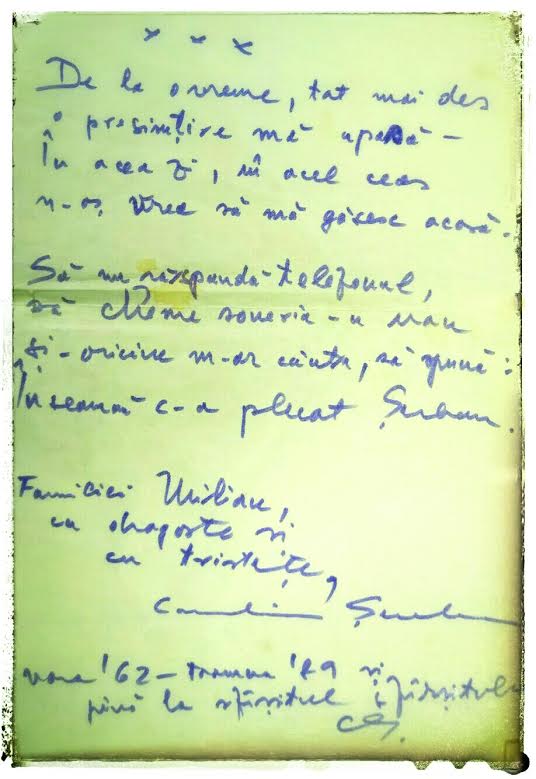 x x x
De la o vreme, tot mai des
o presimțire mă apasă –
În acea zi, în acel ceas
n-aș vrea să mă găsesc acasă.
Să nu răspundă telefonul,
să cheme soneria-n van
Și-oricine m-ar căuta, să spună:
Înseamnă c-a plecat Șerban.
Familiei Milian,
cu dragoste și
cu tristețe,
Șerban
vara '62 – toamna '89 și
pînă la sfîrșitul sfîrșitului
CȘ.